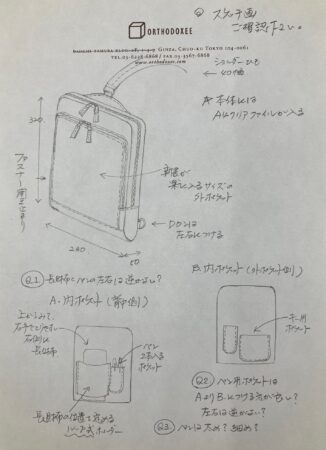 ORTHODOXEE
GINZA, CHUO-KU TOKYO 104-0061
TEL 03-6228-6868 / FAX 03-3567-6868
www.orthodoxee.com
スケッチ画
ご確認下さい。
ショルダーひも
← 40幅
本体には
A4クリアファイルが入る
320
ファスナー開き止まり
新書が
楽に入るサイズの
外ポケット
Dカンは
左右につける
240
60
Q.1 長財布とペンの左右は逆がよい?
A. 内ポケット (背中側)
B. 内ポケット (外ポケット側)
上からみて、
右手でとりやすい
右側に
長財布
ペン
2本入る
ポケット
キー用
ポケット
長財布の位置を定める
ホルダー
Q2. ペン用ポケットは
AよりBにつける方が良い?
左右は逆がよい?
Q3. ペンは太め? 細め?